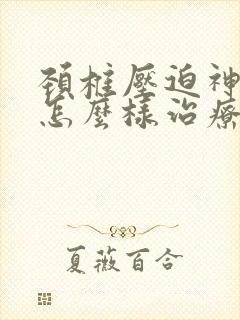 頚椎壓迫神
怎麼樣治療
夏薇百合